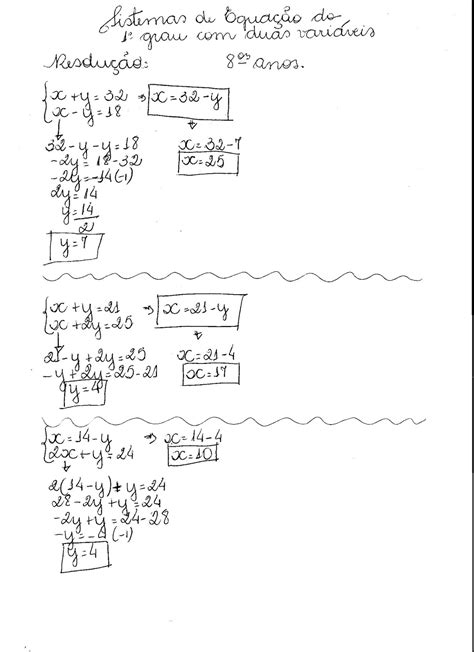 Sistemas de Equação do
1º grau com duas variáveis
Resolução: 8ºs anos.
{x + y = 32 → x = 32 - y
x - y = 18
32 - y - y = 18 x = 32 - 7
-2y = 18 - 32 x = 25
-2y = -14 (-1)
2y = 14
y = 14/2
y = 7
{x + y = 21 → x = 21 - y
x + 2y = 25
21 - y + 2y = 25 x = 21 - 4
-y + 2y = 25 - 21 x = 17
y = 4
{x = 14 - y → x = 14 - 4
2x + y = 24 x = 10
2(14 - y) + y = 24
28 - 2y + y = 24
-2y + y = 24 - 28
-y = -4 (-1)
y = 4